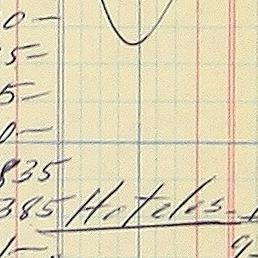 0-
5-
5-
0-
835
385 Hotels-